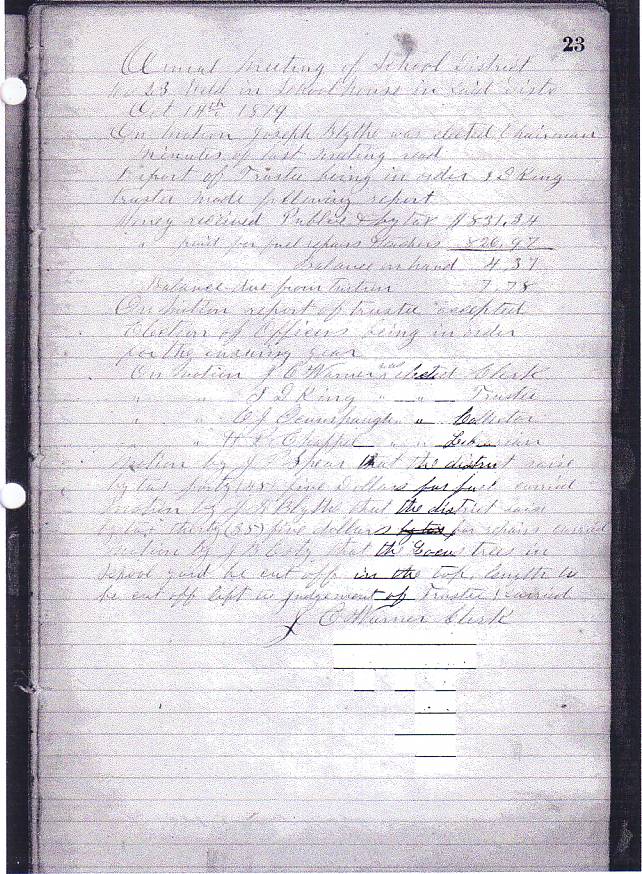 23
Annual Meeting of School District
No 23 Held in School house in Said Dist
Oct 14th 1879
On motion Joseph Blythe was elected Chairman
minutes of last meeting read
Report of Trustee being in order J D King
trustee made following report
Money received Public & by tax $831,34
" paid for fuel repairs Teachers 826,97
Balance on hand 4,37
Balance due from 7.78
On motion report of trustee accepted
Election of Officers being in order
for the ensuing year
On motion J C Warner was elected Clerk
" " J D King " — Trustee
" " C J " Collector
" " H R Chappel " "
Motion by J P Spear that the district raise
by tax forty (45) five Dollars for fuel carried
motion by J Blythe that the district raise
by tax thirty (35) five dollars by tax for repairs carried
motion by J B that the Locus trees in
School yard be cut off in the top, length to
be cut off left to judgement of Trustee carried
J C Warner Clerk